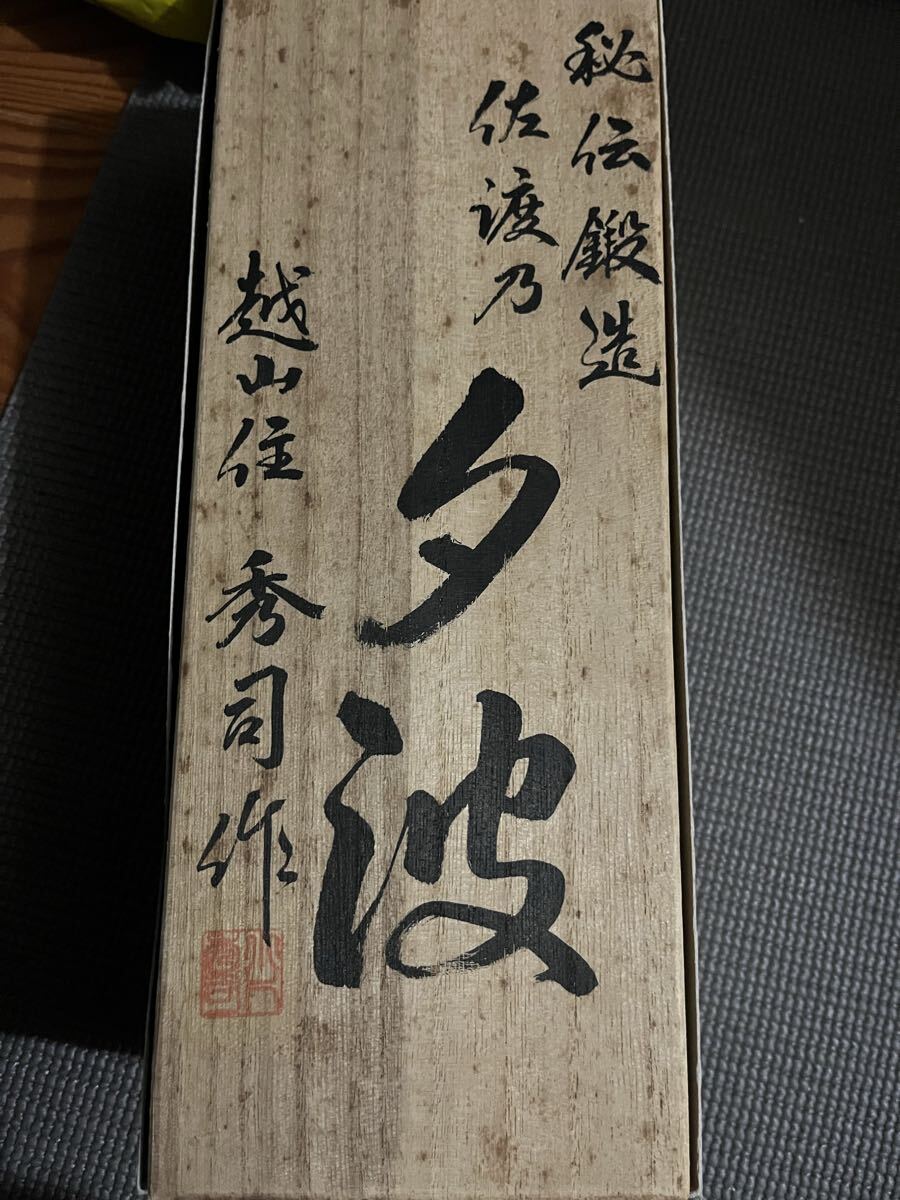 秘伝鍛造
佐渡乃
夕波
越山住 秀司作